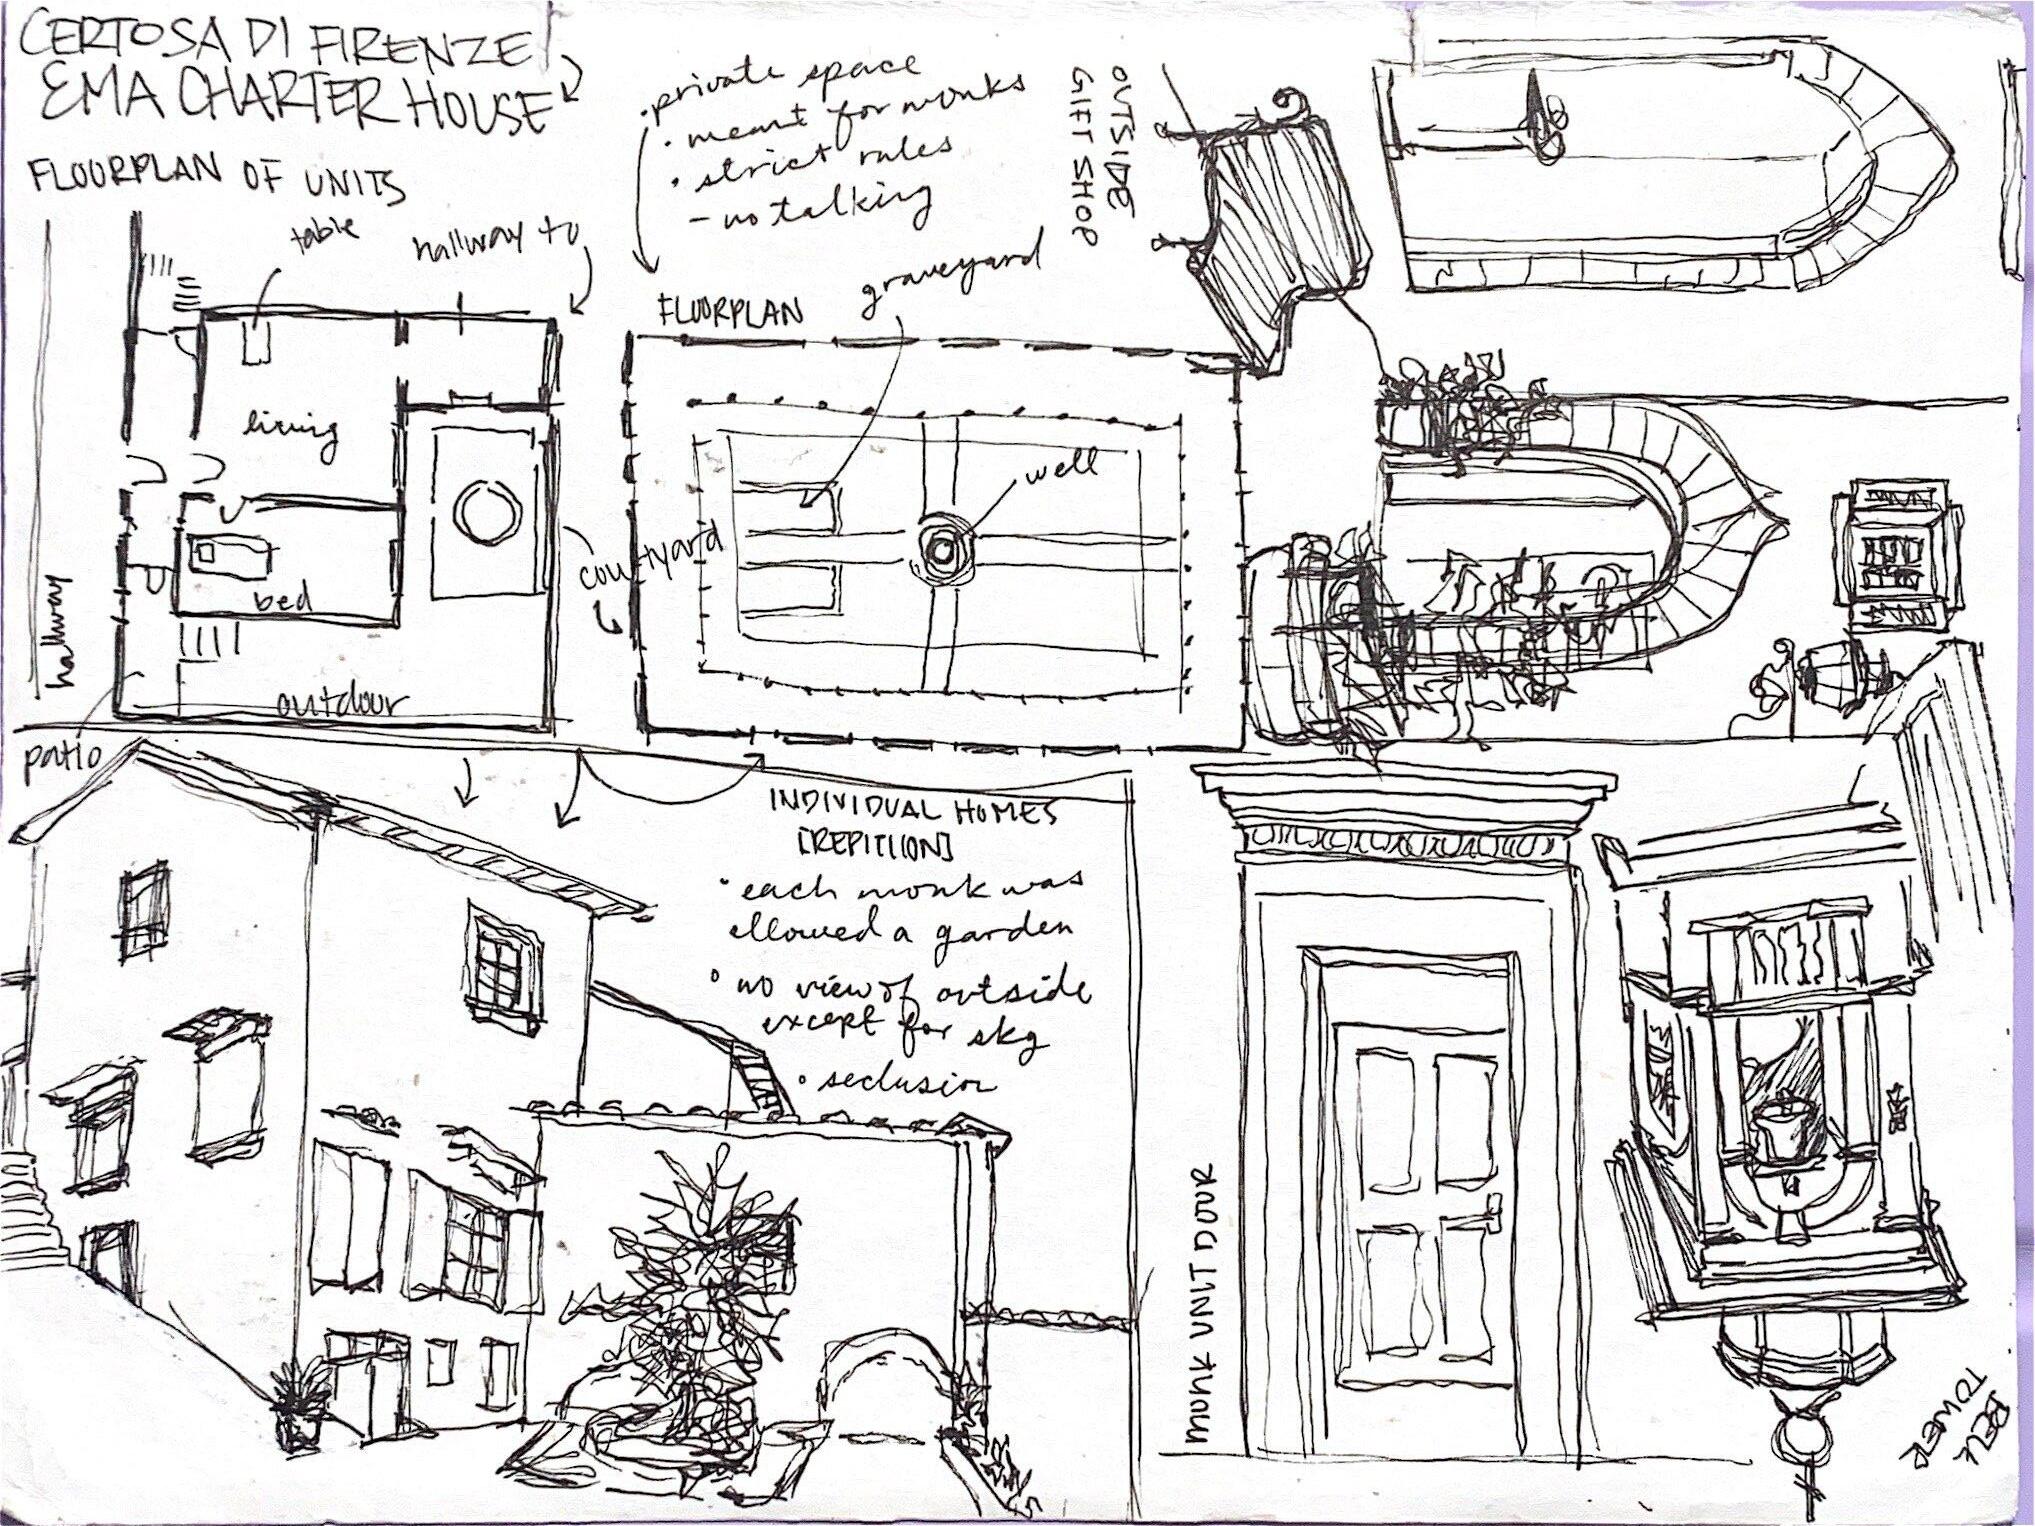 CERTOSA DI FIRENZE
EMA CHARTER HOUSE
FLOORPLAN OF UNITS
table
hallway to
living
bed
hallway
outdour
patio
courtyard
• private space
• meant for monks
• strict rules
- no talking
graveyard
FLOORPLAN
well
OUTSIDE
GIFT SHOP
INDIVIDUAL HOMES
[REPITIION]
• each monk was
allowed a garden
• no view of outside
except for sky
• seclusion
MONK UNIT DOOR
BELL
TOWER